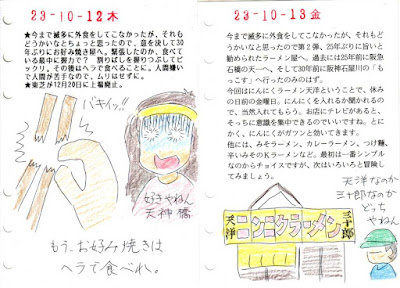 23-10-12木
★今まで滅多に外食をしてこなかったが、それも
どうかいなとちょっと思ったので、意を決して30
年ぶりにお好み焼き屋へ。緊張したのか、食べて
いる最中に握力で？割りばしを握りつぶしてビッ
クリ。その後はヘラで食べることに。人間嫌い
で人間が苦手なので、ムリはせずに。
★東芝が12月20日に上場廃止。
バキィッ!!
好きやねん
天神橋
もう、お好み焼きは
ヘラで食べれ。
23-10-13金
今まで滅多に外食をしてこなかったが、それもど
うかいなと思ったので第2弾、25年ぶりに旨いと
勧められたラーメン屋へ。過去には25年前に阪急
石橋の天一へ、そして30年前に阪神石屋川の「も
っこす」へ行ったのみのはず。
今回はにんにくラーメン天洋ということで、休み
の日前の金曜日。にんにくを入れるか聞かれるの
で、当然入れてもらう。お店にテレビがあると、
そっちに意識を集中できるのでいいですね。とに
かく、にんにくがガツンと効いてます。
他には、みそラーメン、カレーラーメン、つけ麺、
辛いみそのKラーメンなど。最初は一番シンプル
なのからチョイスですが、次はいろいろと冒険し
てみましょう。
天洋なのか
三十郎なのか
どっち
やねん
天洋 ニンニクラーメン 三十郎